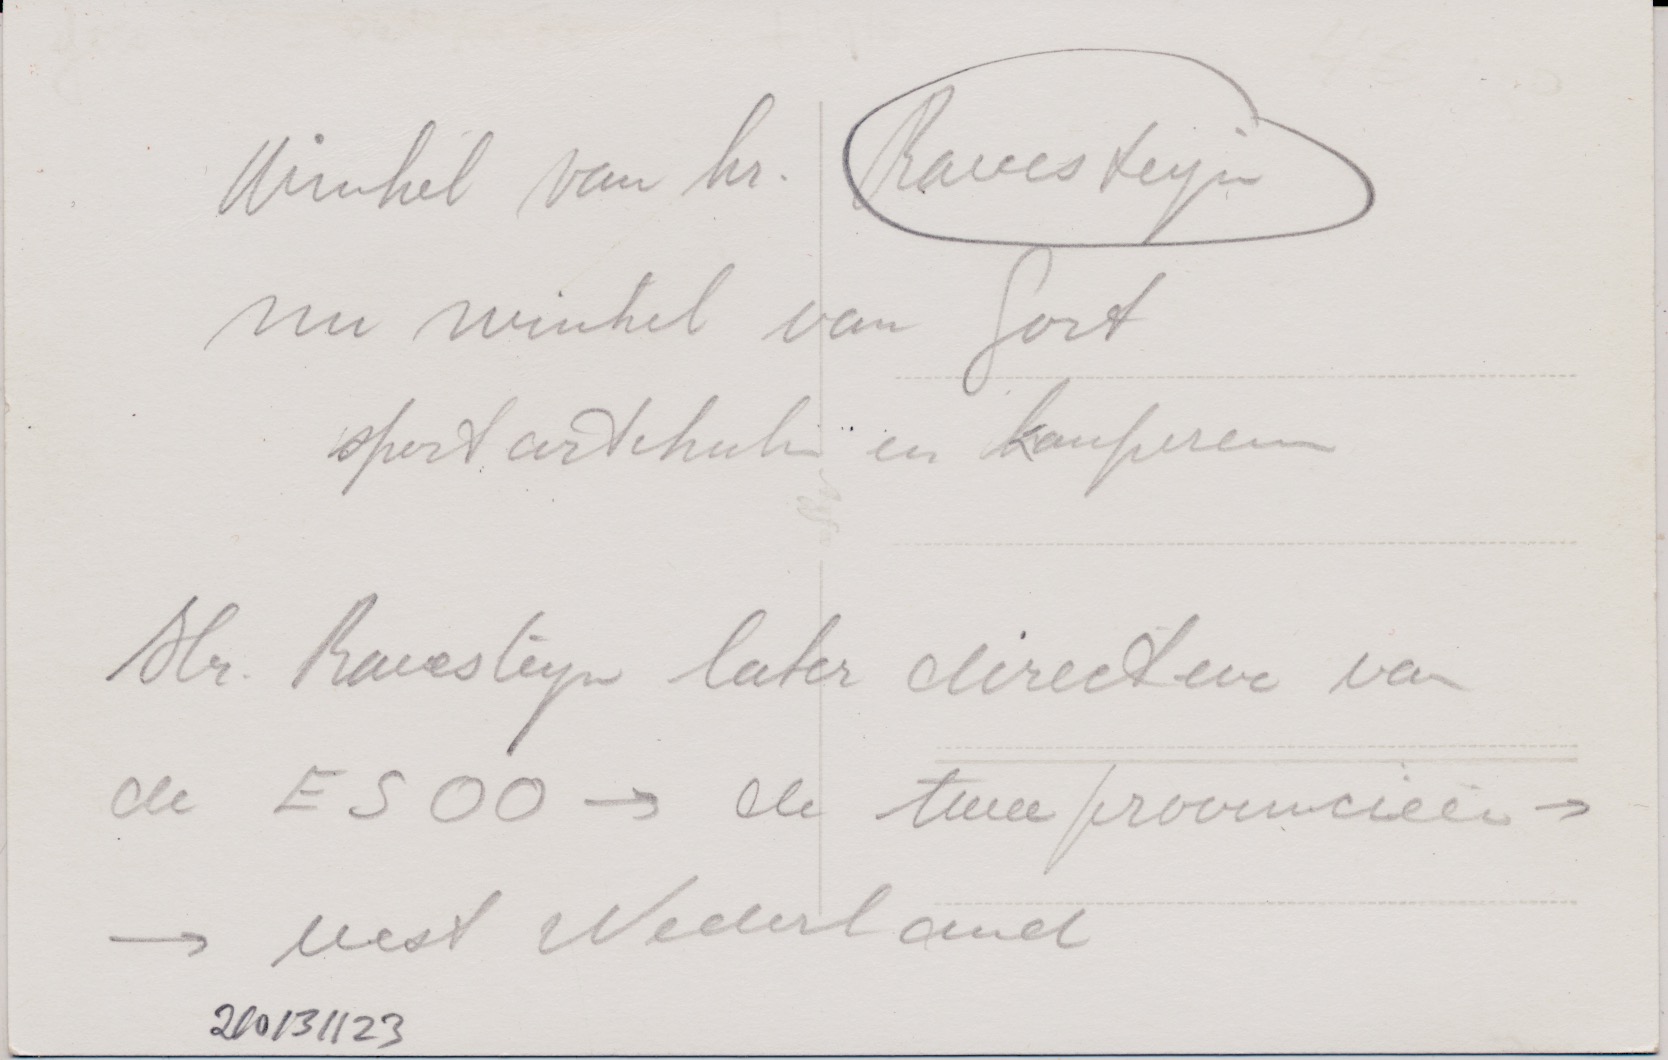 Winkel van hr. Ravesteijn
nu winkel van Gort
sportartikelen en kamperen
Hr. Ravesteyn later directeur van
de ESOO → de twee provincieën →
→ west Nederland
210131123